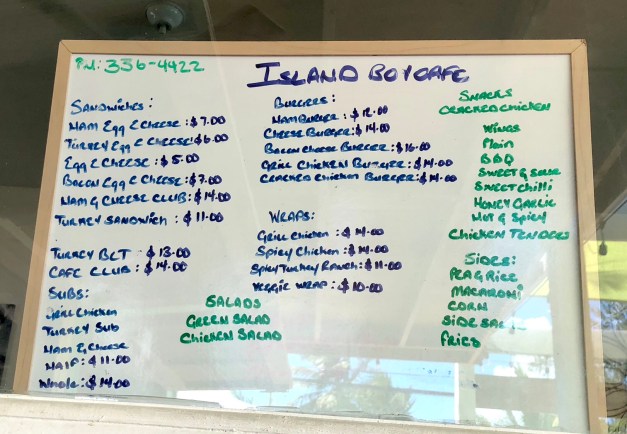 PH: 336-4422
ISLAND BOY CAFE
SANDWICHES:
HAM EGG & CHEESE: $7.00
TURKEY EGG & CHEESE: $6.00
EGG & CHEESE: $5.00
BACON EGG & CHEESE: $7.00
HAM & CHEESE CLUB: $14.00
TURKEY SANDWICH: $11.00
TURKEY BLT: $13.00
CAFE CLUB: $14.00
SUBS:
GRILL CHICKEN
TURKEY SUB
HAM & CHEESE
HALF: $11.00
WHOLE: $14.00
BURGERS:
HAMBURGER: $12.00
CHEESE BURGER: $14.00
BACON CHEESE BURGER: $16.00
GRILL CHICKEN BURGER: $14.00
CRACKED CHICKEN BURGER: $14.00
WRAPS:
GRILL CHICKEN: $14.00
SPICY CHICKEN: $14.00
SPICY TURKEY RANCH: $11.00
VEGGIE WRAP: $10.00
SALADS
GREEN SALAD
CHICKEN SALAD
SNACKS
CRACKED CHICKEN
WINGS
PLAIN
BBQ
SWEET & SOUR
SWEET CHILLI
HONEY GARLIC
HOT & SPICY
CHICKEN TENDERS
SIDES:
PEA & RICE
MACARONI
CORN
SIDE SALAD
FRIES